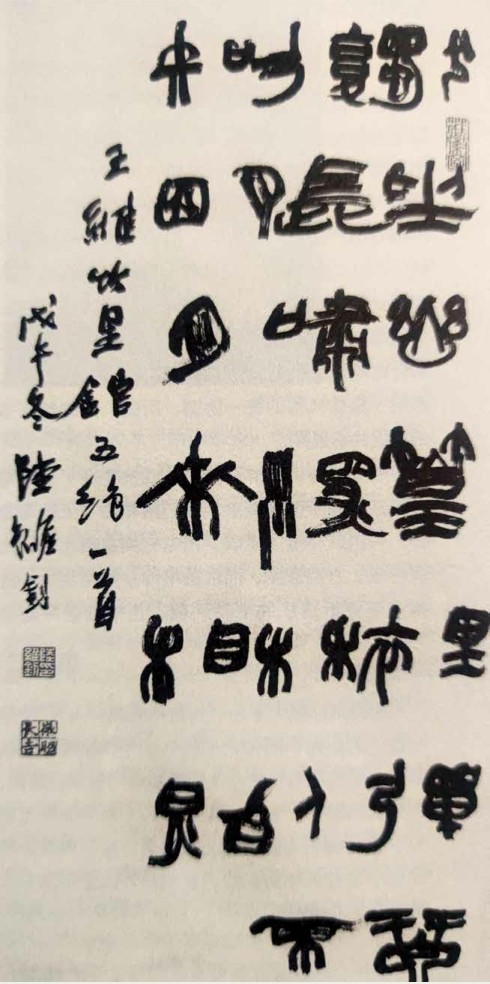 獨坐幽篁里彈琴
復長嘯深林人不
知明月來相照
王維竹里館五絶一首
戊午冬陸維釗